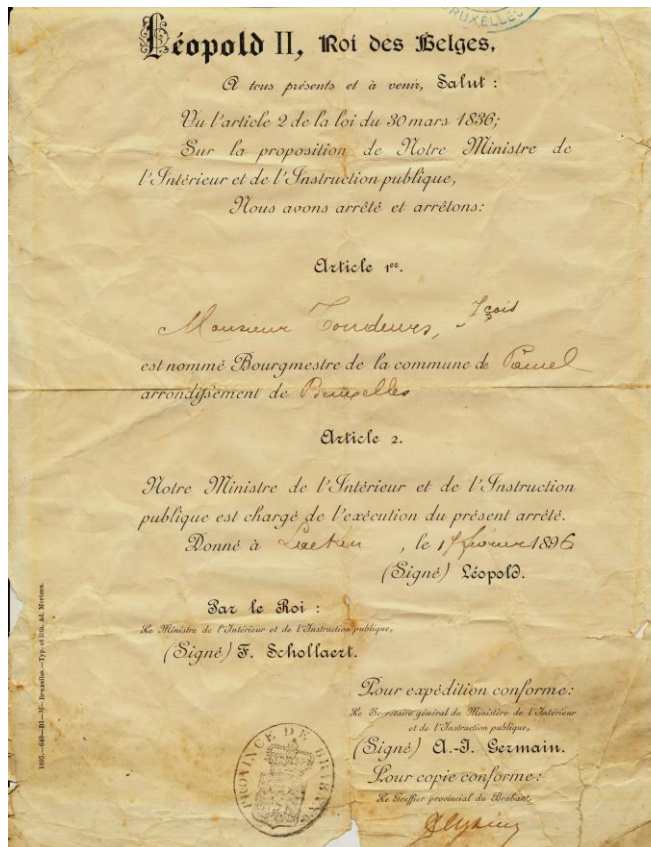 BRUXELLES
Léopold II, Roi des Belges,
A tous présents et à venir, Salut :
Vu l'article 2 de la loi du 30 mars 1836;
Sur la proposition de Notre Ministre de
l'Intérieur et de l'Instruction publique,
Nous avons arrêté et arrêtons:
Article 1er.
Monsieur Tondeurs, Fçois
est nommé Bourgmestre de la commune de Pamel
arrondissement de Bruxelles
Article 2.
Notre Ministre de l'Intérieur et de l'Instruction
publique est chargé de l'exécution du présent arrêté.
Donné à Laeken , le février 1896
(Signé) Léopold.
Par le Roi :
Le Ministre de l'Intérieur et de l'Instruction publique,
(Signé) F. Schollaert.
Pour expédition conforme:
Le Secrétaire général du Ministère de l'Intérieur
et de l'Instruction publique,
(Signé) A.-J. Germain.
Pour copie conforme:
Le Greffier provincial du Brabant,
PROVINCE DE BRABANT